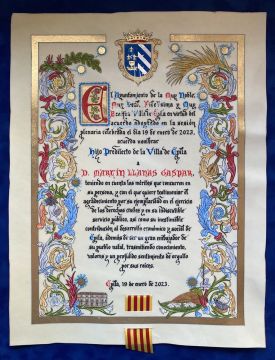 El Ayuntamiento de la Muy Noble,
Muy Leal, Fidelísima y Muy
Heroica Villa de Épila en virtud del
acuerdo adoptado en la sesión
plenaria celebrada el día 19 de enero de 2023,
acuerda nombrar
Hijo Predilecto de la Villa de Épila
a
D. MARTÍN LLANAS GASPAR,
teniendo en cuenta los méritos que concurren en
su persona, y con el que quiere testimoniar el
agradecimiento por su ejemplaridad en el ejercicio
de los derechos civiles y en su indiscutible
servicio público, así como su inestimable
contribución al desarrollo económico y social de
Épila, además de ser un gran embajador de
su pueblo natal, transmitiendo conocimiento,
valores y un profundo sentimiento de orgullo
por sus raíces.
Épila, 19 de enero de 2023.